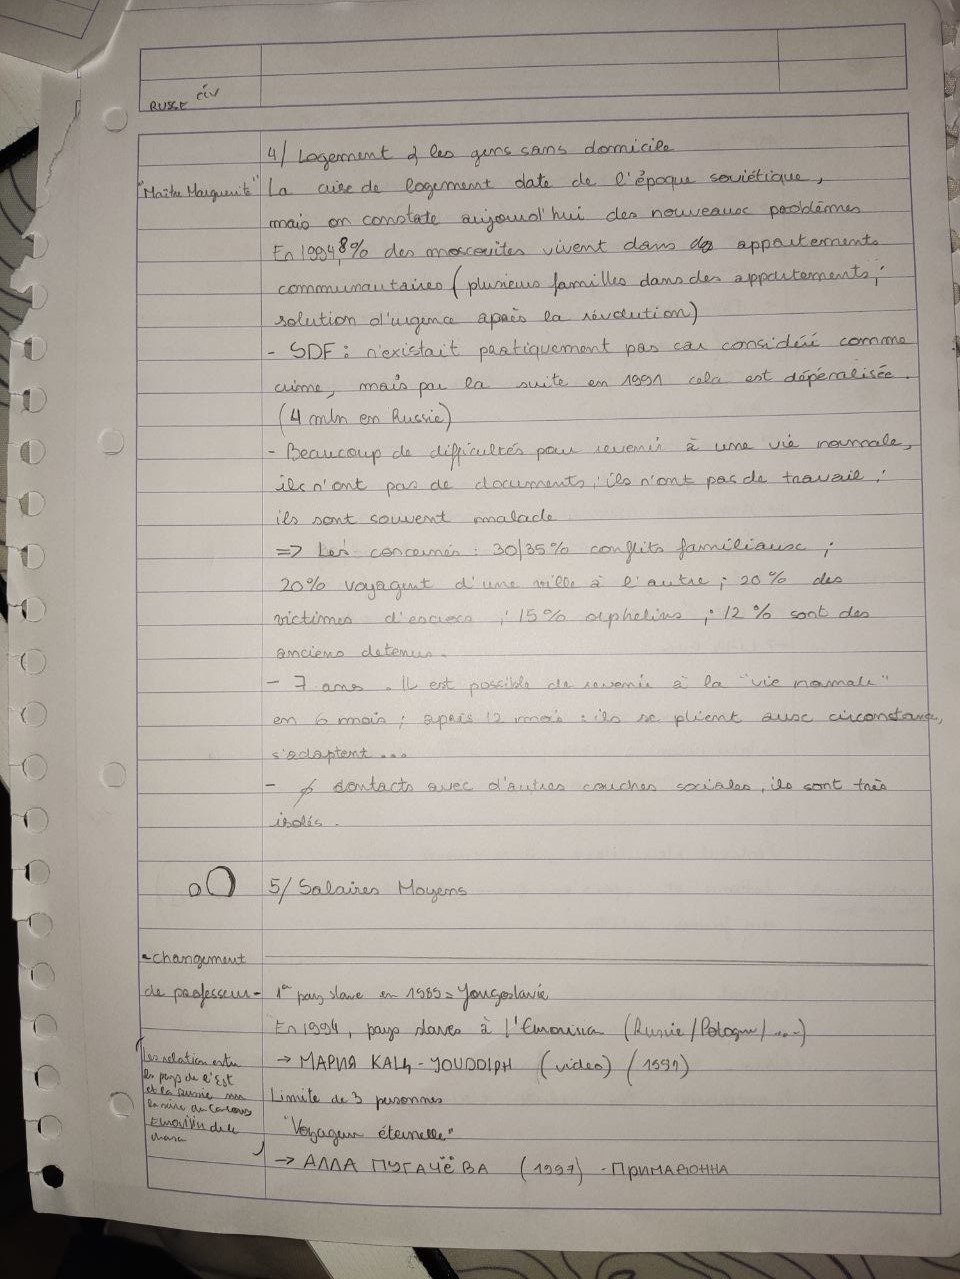 Russe civ
4/ Logement & les gens sans domicile
"Maître Marguerite"
La crise de logement date de l'époque soviétique,
mais on constate aujourd'hui des nouveaux problèmes
En 1994, 8% des moscovites vivent dans des appartements
communautaires (plusieurs familles dans des appartements,
solution d'urgence après la révolution)
- SDF : n'existait pratiquement pas car considéré comme
crime, mais par la suite en 1991 cela est dépénalisée.
(4 mln en Russie)
- Beaucoup de difficultés pour revenir à une vie normale,
ils n'ont pas de documents, ils n'ont pas de travail,
ils sont souvent malade
=> Les concernés : 30/35% conflits familiaux ;
20% voyagent d'une ville à l'autre ; 20% des
victimes d'escrocs ; 15% orphelins ; 12% sont des
anciens detenus.
- 7 ans. Il est possible de revenir à la "vie normale"
en 6 mois ; après 12 mois : ils se plient aux circonstances,
s'adaptent ...
- ø contacts avec d'autres couches sociales, ils sont très
isolés.
5/ Salaires Moyens
- changement
de professeur -
1er pays slave en 1989 = Yougoslavie
En 1994, pays slaves à l'Eurovision (Russie/Pologne/...)
→ МАРИЯ КАЦ - JOUDDIPH (video) / (1994)
Limite de 3 personnes
"Voyageur éternelle"
→ АЛЛА ПУГАЧЁВА (1997) - ПРИМАДОННА
Les relation entre
les pays de l'Est
et la Russie
Eurovision de la